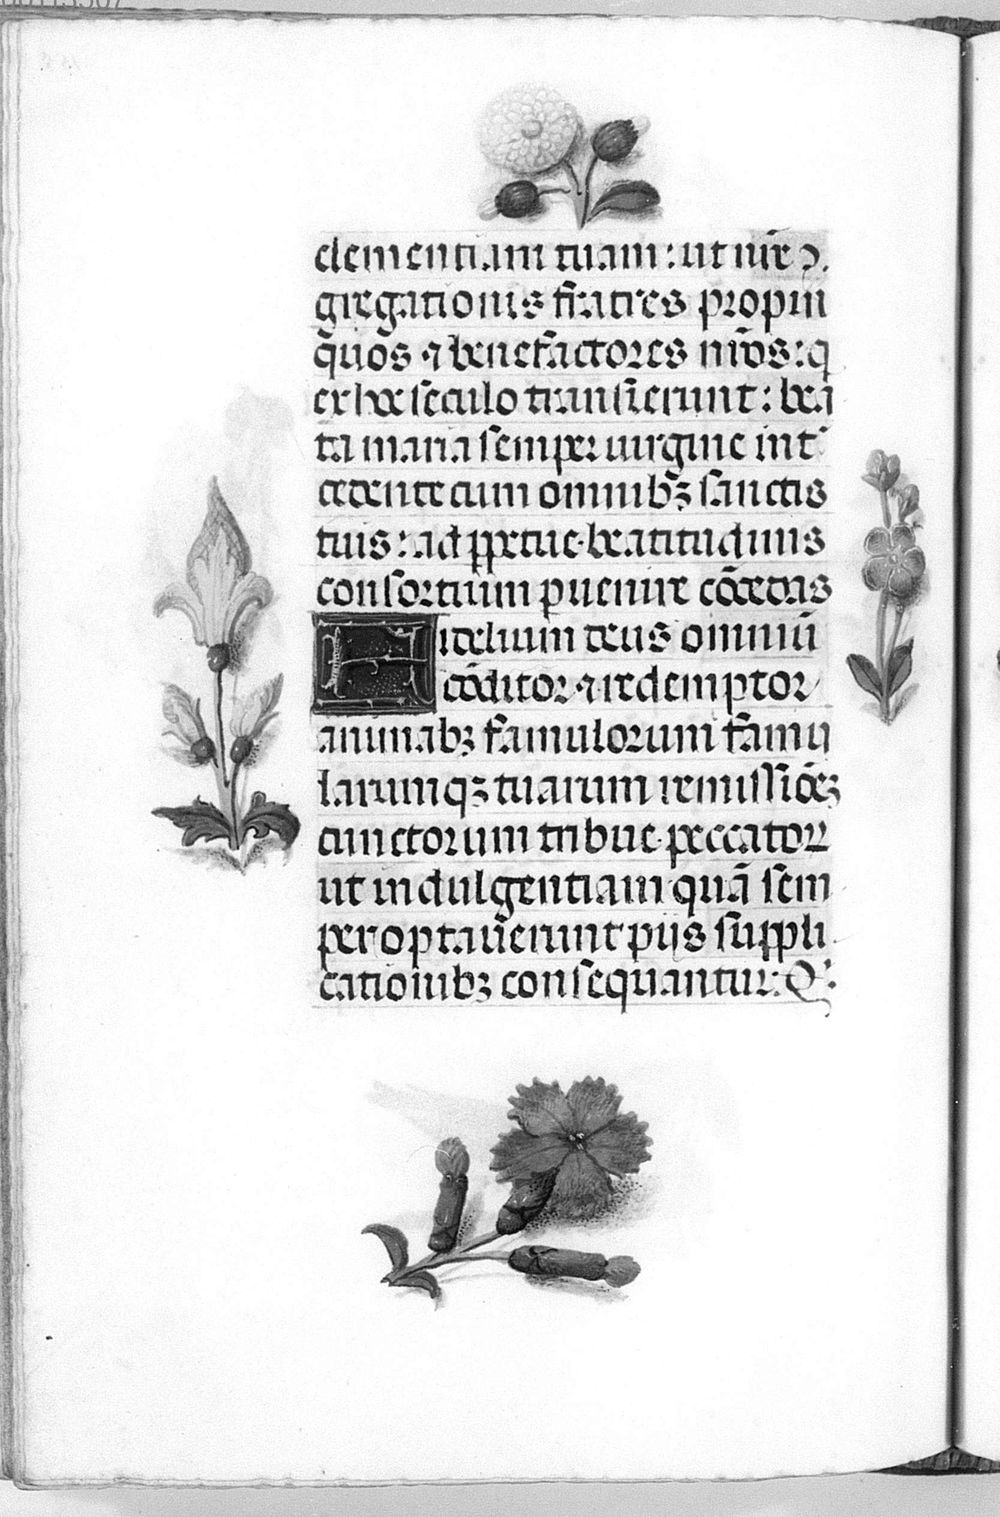 clementiam tuam: ut nr̄e ↄ.
gregationis fratres propin
quos ⁊ benefactores nr̄os: q̄
ex hoc seculo transierunt: bea
ta maria semper uirgine int
cedente cum omnibꝫ sanctis
tuis: ad ꝑpetue beatitudinis
consortium ꝑuenire cōcedas
Fidelium deus omniū
cōditor ⁊ redemptor
animabꝫ famulorum famu
larumqꝫ tuarum remissiōeꝫ
cunctorum tribue peccatoꝝ
ut indulgentiam quā sem
per optauerunt piis suppli
cationibꝫ consequantur: Q